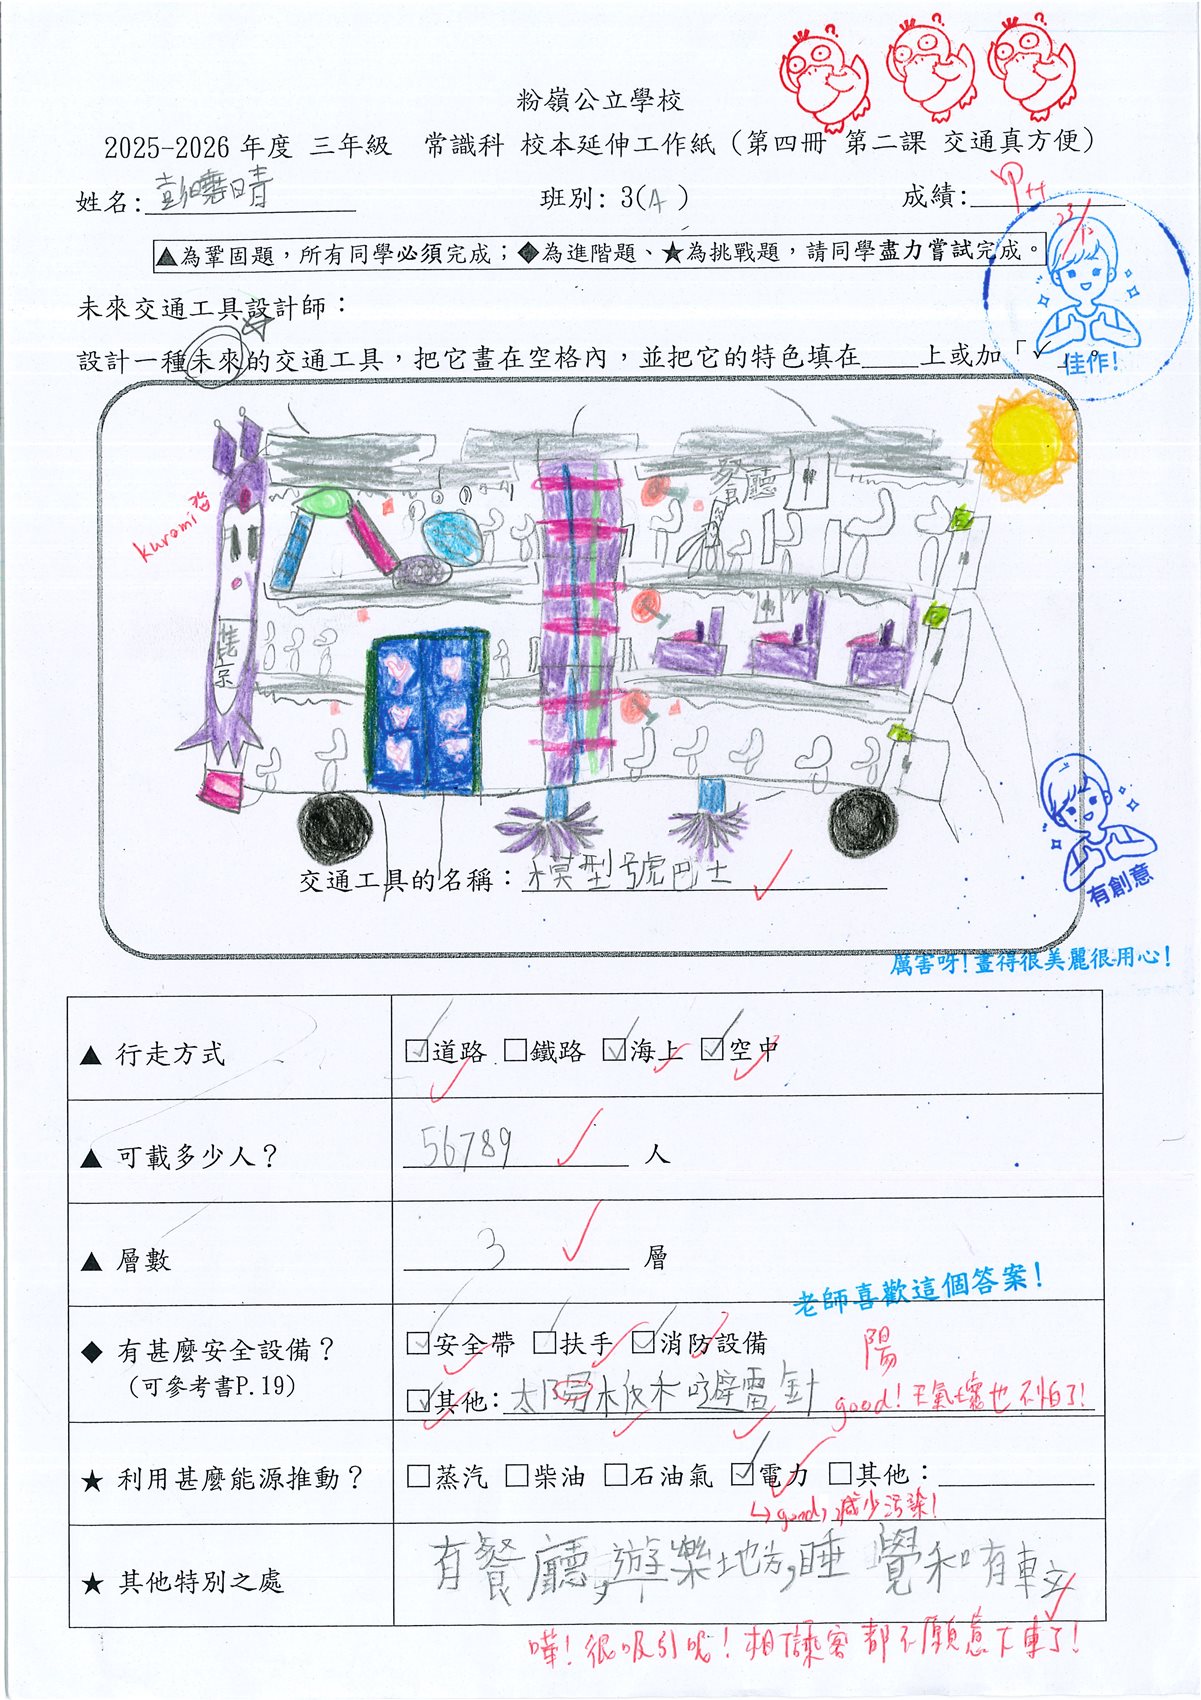 粉嶺公立學校
2025-2026 年度 三年級 常識科 校本延伸工作紙（第四冊 第二課 交通真方便）
姓名: 彭曉晴 班別: 3(A) 成績: 甲++
23/12
▲為鞏固題，所有同學必須完成；◆為進階題、★為挑戰題，請同學盡力嘗試完成。
未來交通工具設計師：
設計一種未來的交通工具，把它畫在空格內，並把它的特色填在____上或加「✓
佳作!
餐廳
kuromi
交通工具的名稱：模型號巴士
有創意
厲害呀!畫得很美麗很用心!
▲ 行走方式 ☑道路 □鐵路 ☑海上 ☑空中
▲ 可載多少人？ 56789 人
▲ 層數 3 層
老師喜歡這個答案!
◆ 有甚麼安全設備？ ☑安全帶 ☑扶手 ☑消防設備
陽
(可參考書P.19) ☑其他: 太陽板和避雷針 good! 天氣壞也不怕了!
★ 利用甚麼能源推動？ □蒸汽 □柴油 □石油氣 ☑電力 □其他：
↳good, 減少污染!
★ 其他特別之處 有餐廳,遊樂地方,睡覺和有車立
嘩! 很吸引呢! 相信乘客都不願意下車了!